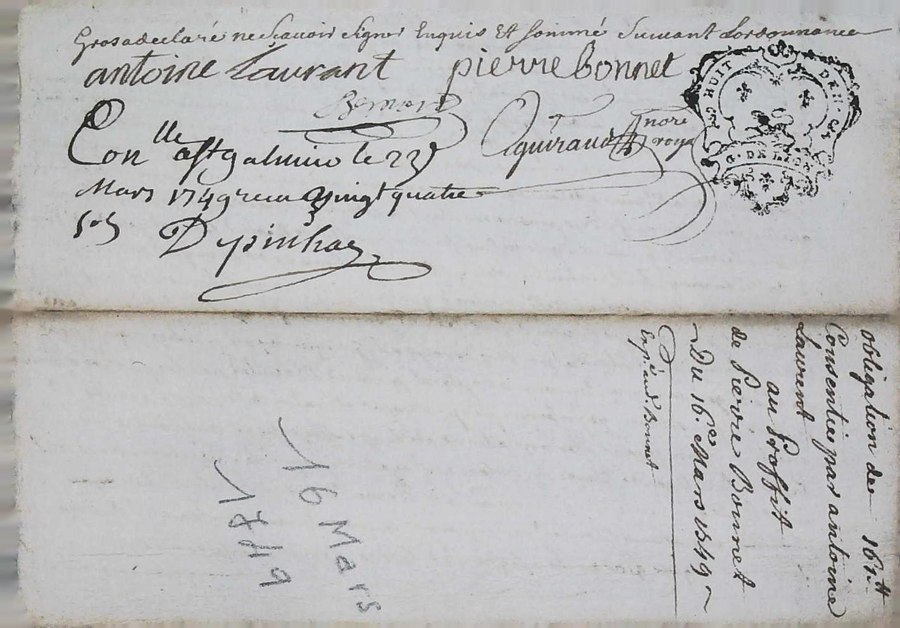 Gros a declaré ne Scavoir Signer Enquis Et Sommé Suivant Lordonnance
antoine Laurant pierre Bonnet
Con.lle a St galmier le 22
Mars 1749 recu vingt quatre
sols
nore
roya
obligation de 161 tt
Consentie par antoine
Laurent
au Proffit
de Pierre Bonnet
Du 16e Mars 1749
Exp. é and. Bonnet
16 Mars
1749